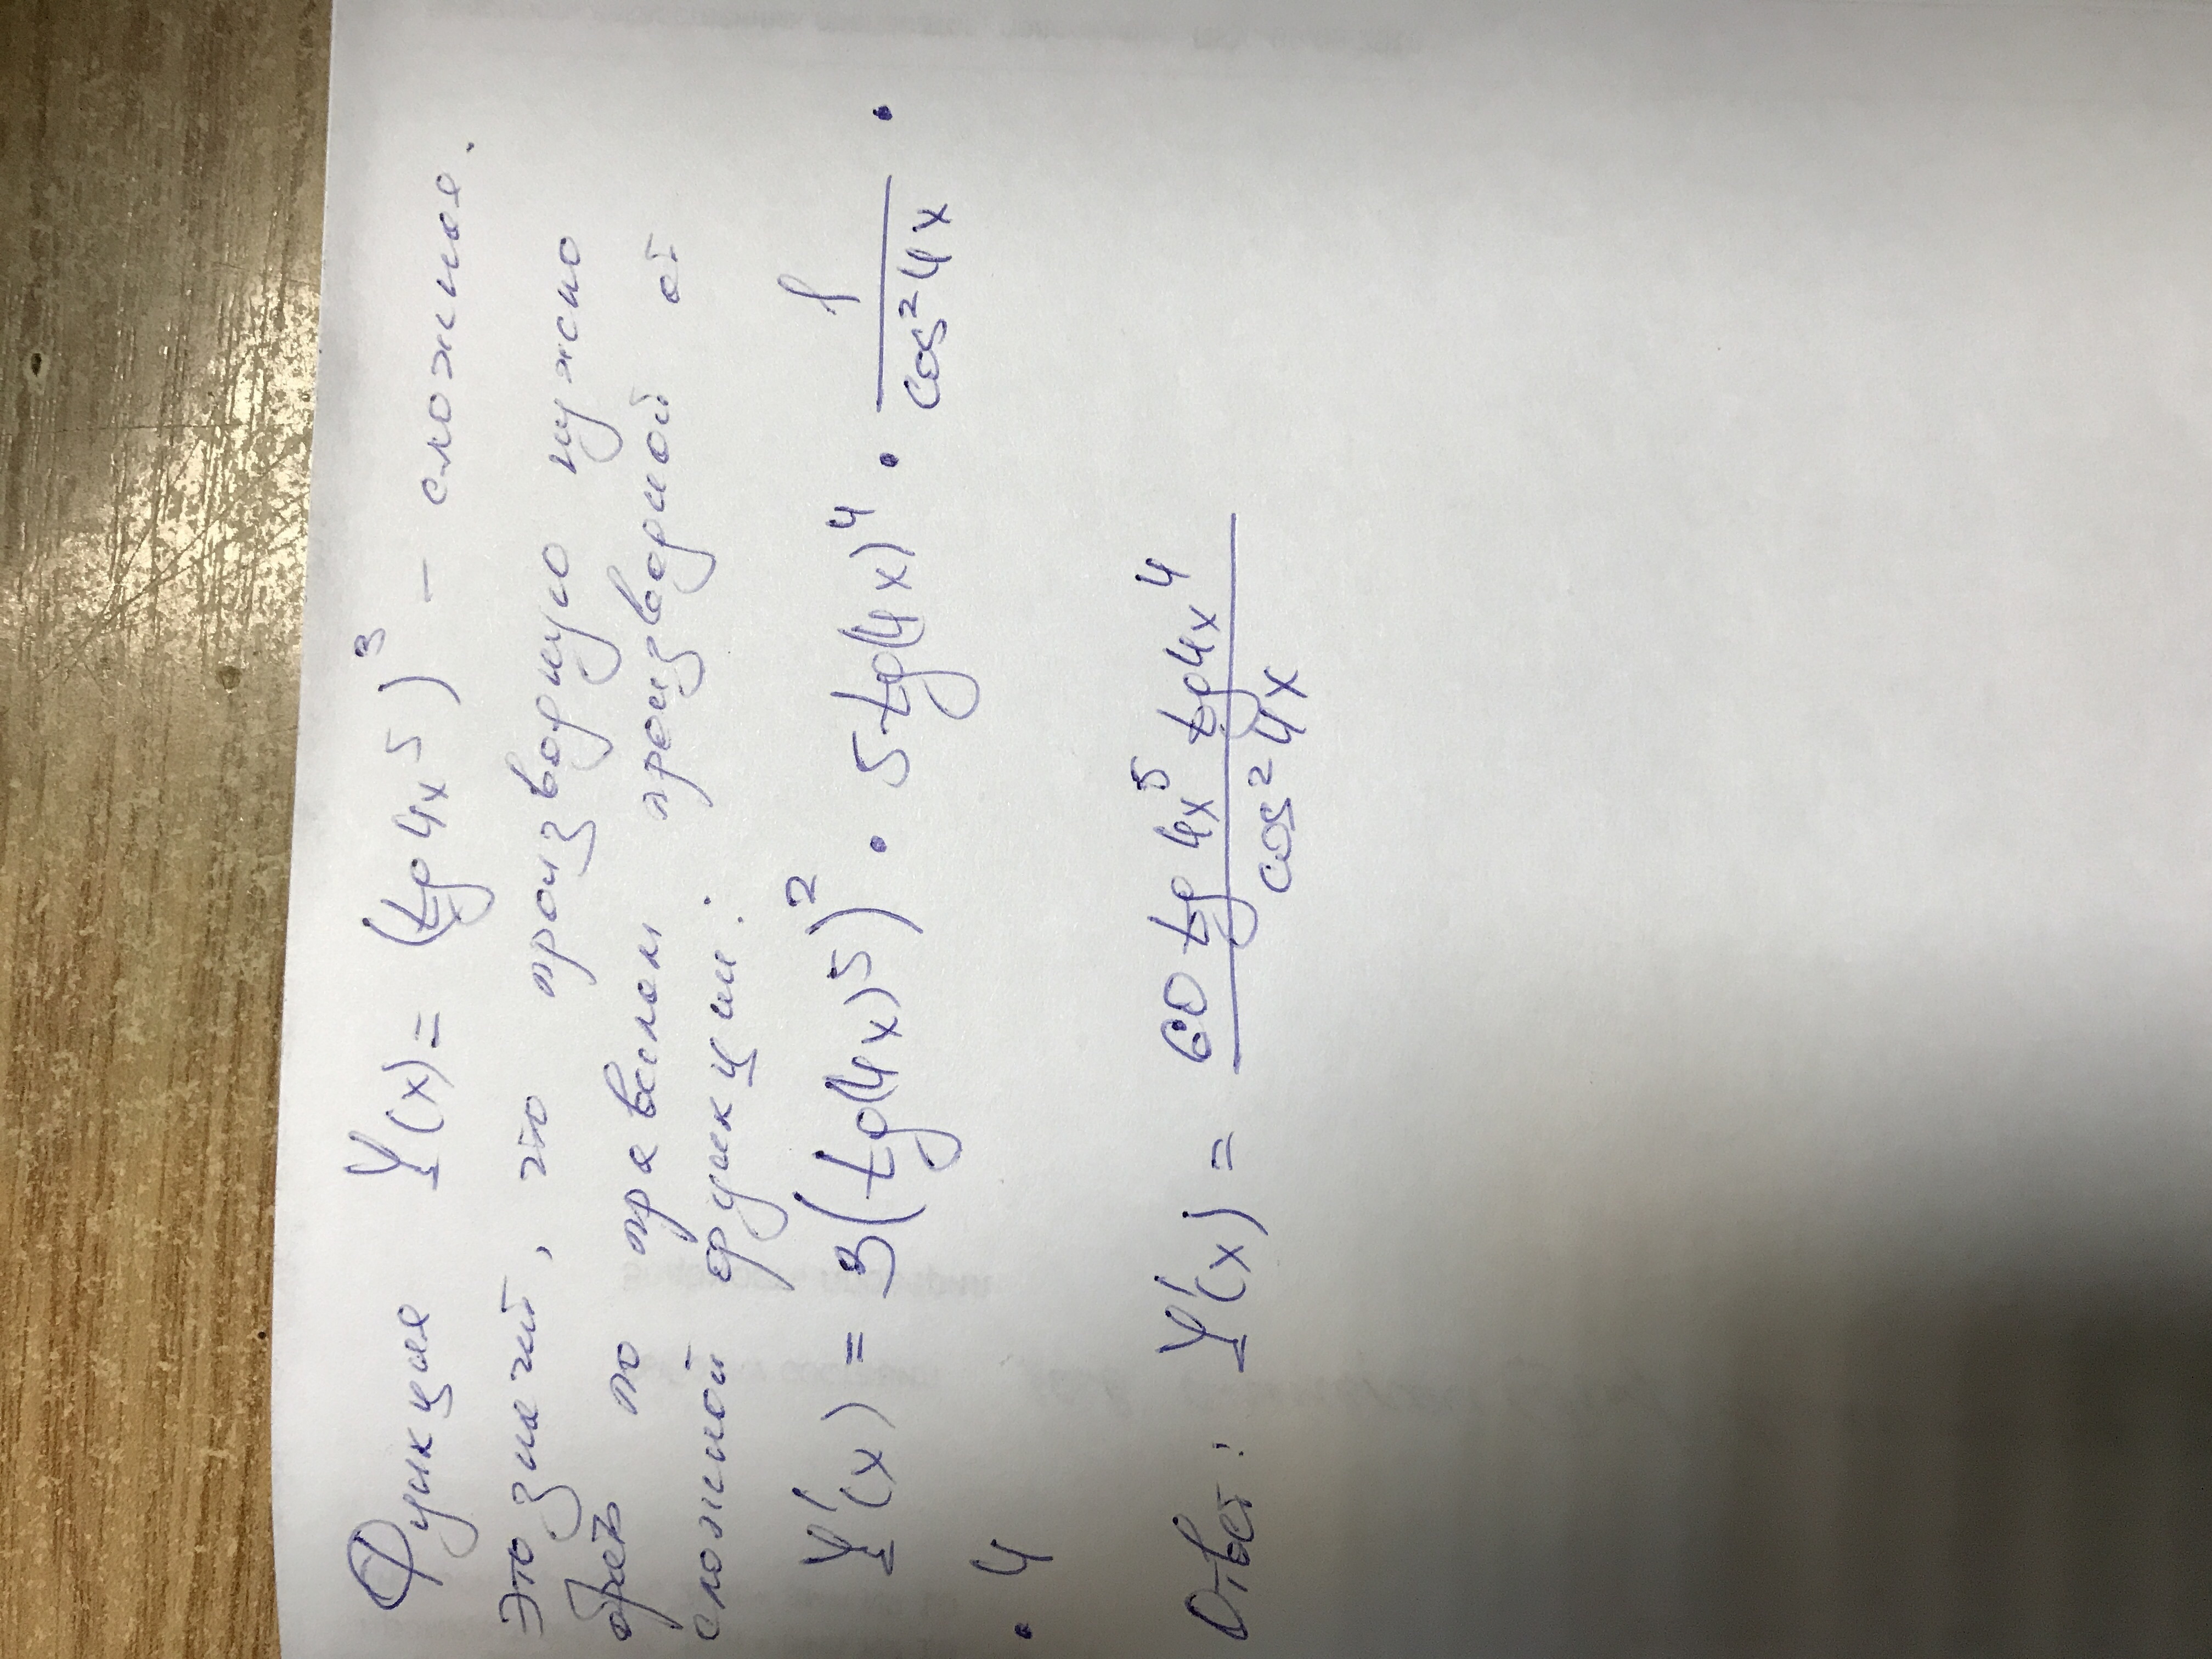 Функция Y(x) = (tg 4x⁵)³ – сложная.
Это значит, что производную нужно
брать по правилам производной от
сложной функции:
Y'(x) = 3(tg(4x)⁵)² · 5 tg(4x)⁴ · 1/cos²4x ·
· 4
Ответ: Y'(x) = 60 tg 4x⁵ tg 4x⁴ / cos² 4x